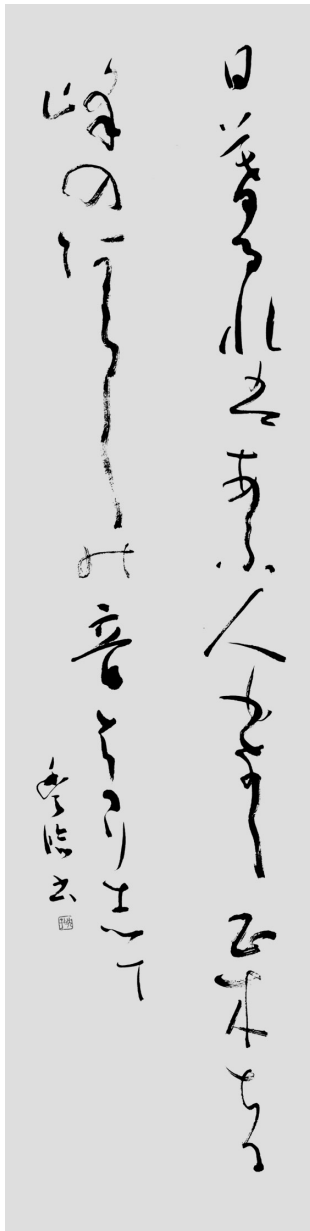 日暮るれはあふ人もなし正木ちる
峰のあらしの音はかりして